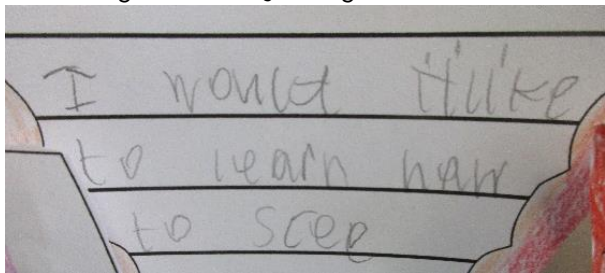 I would like
to learn haw
to scep